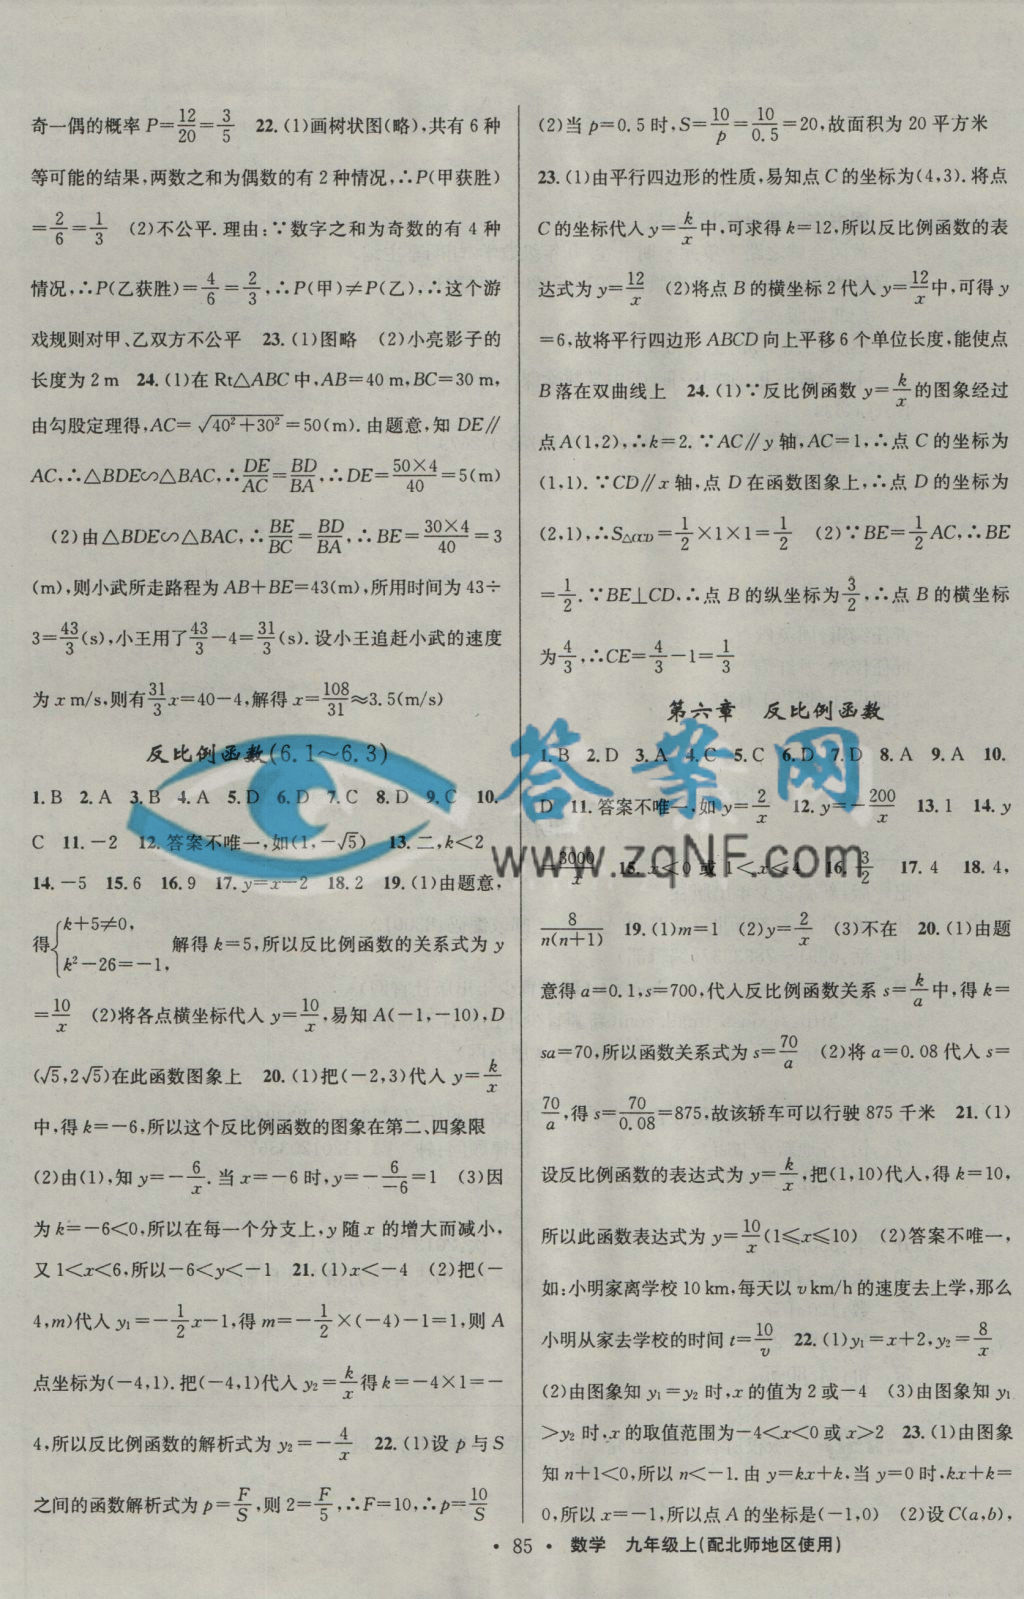 奇一偶的概率P=12/20=3/5　22.(1)画树状图(略),共有6种
等可能的结果,两数之和为偶数的有2种情况,∴P(甲获胜)
=2/6=1/3　(2)不公平.理由:∵数字之和为奇数的有4种
情况,∴P(乙获胜)=4/6=2/3,∴P(甲)≠P(乙),∴这个游
戏规则对甲、乙双方不公平　23.(1)图略　(2)小亮影子的
长度为2 m　24.(1)在Rt△ABC中,AB=40 m,BC=30 m,
由勾股定理得,AC=√(40²+30²)=50(m).由题意,知DE∥
AC,∴△BDE∽△BAC,∴DE/AC=BD/BA,∴DE=50×4/40=5(m)
(2)由△BDE∽△BAC,∴BE/BC=BD/BA,∴BE=30×4/40=3
(m),则小武所走路程为AB+BE=43(m),所用时间为43÷
3=43/3(s),小王用了43/3-4=31/3(s).设小王追赶小武的速度
为x m/s,则有31/3x=40-4,解得x=108/31≈3.5(m/s)
反比例函数(6.1~6.3)
1.B　2.A　3.B　4.A　5.D　6.D　7.C　8.D　9.C　10.
C　11.-2　12.答案不唯一,如(1,-√5)　13.二,k<2
14.-5　15.6　16.9　17.y=x-2　18.2　19.(1)由题意,
得{k+5≠0, k²-26=-1,　解得k=5,所以反比例函数的关系式为y
=10/x　(2)将各点横坐标代入y=10/x,易知A(-1,-10),D
(√5,2√5)在此函数图象上　20.(1)把(-2,3)代入y=k/x
中,得k=-6,所以这个反比例函数的图象在第二、四象限
(2)由(1),知y=-6/x.当x=-6时,y=-6/-6=1　(3)因
为k=-6<0,所以在每一个分支上,y随x的增大而减小,
又1<x<6,所以-6<y<-1　21.(1)x<-4　(2)把(-
4,m)代入y₁=-1/2x-1,得m=-1/2×(-4)-1=1,则A
点坐标为(-4,1).把(-4,1)代入y₂=k/x得k=-4×1=-
4,所以反比例函数的解析式为y₂=-4/x　22.(1)设p与S
之间的函数解析式为p=F/S,则2=F/5,∴F=10,∴p=10/S
(2)当p=0.5时,S=10/p=10/0.5=20,故面积为20平方米
23.(1)由平行四边形的性质,易知点C的坐标为(4,3).将点
C的坐标代入y=k/x中,可求得k=12,所以反比例函数的表
达式为y=12/x　(2)将点B的横坐标2代入y=12/x中,可得y
=6,故将平行四边形ABCD向上平移6个单位长度,能使点
B落在双曲线上　24.(1)∵反比例函数y=k/x的图象经过
点A(1,2),∴k=2.∵AC∥y轴,AC=1,∴点C的坐标为
(1,1).∵CD∥x轴,点D在函数图象上,∴点D的坐标为
(2,1),∴S△OCD=1/2×1×1=1/2　(2)∵BE=1/2AC,∴BE
=1/2.∵BE⊥CD,∴点B的纵坐标为3/2,∴点B的横坐标
为4/3,∴CE=4/3-1=1/3
第六章　反比例函数
1.B　2.D　3.A　4.C　5.C　6.D　7.D　8.A　9.A　10.
D　11.答案不唯一,如y=2/x　12.y=-200/x　13.1　14.y
=3000/x　15.x<0或1<x<4　16.3/2　17.4　18.4,
8/n(n+1)　19.(1)m=1　(2)y=2/x　(3)不在　20.(1)由题
意得a=0.1,s=700,代入反比例函数关系s=k/a中,得k=
sa=70,所以函数关系式为s=70/a　(2)将a=0.08代入s=
70/a,得s=70/0.08=875,故该轿车可以行驶875千米　21.(1)
设反比例函数的表达式为y=k/x,把(1,10)代入,得k=10,
所以此函数表达式为y=10/x(1≤x≤10)　(2)答案不唯一,
如:小明家离学校10 km,每天以v km/h的速度去上学,那么
小明从家去学校的时间t=10/v　22.(1)y₁=x+2,y₂=8/x
(2)由图象知y₁=y₂时,x的值为2或-4　(3)由图象知y₁
>y₂时,x的取值范围为-4<x<0或x>2　23.(1)由图象
知n+1<0,所以n<-1.由y=kx+k,当y=0时,kx+k=
0,所以x=-1,所以点A的坐标是(-1,0)　(2)设C(a,b),
• 85 • 数学　九年级上(配北师地区使用)
答案网
www.zqNF.com